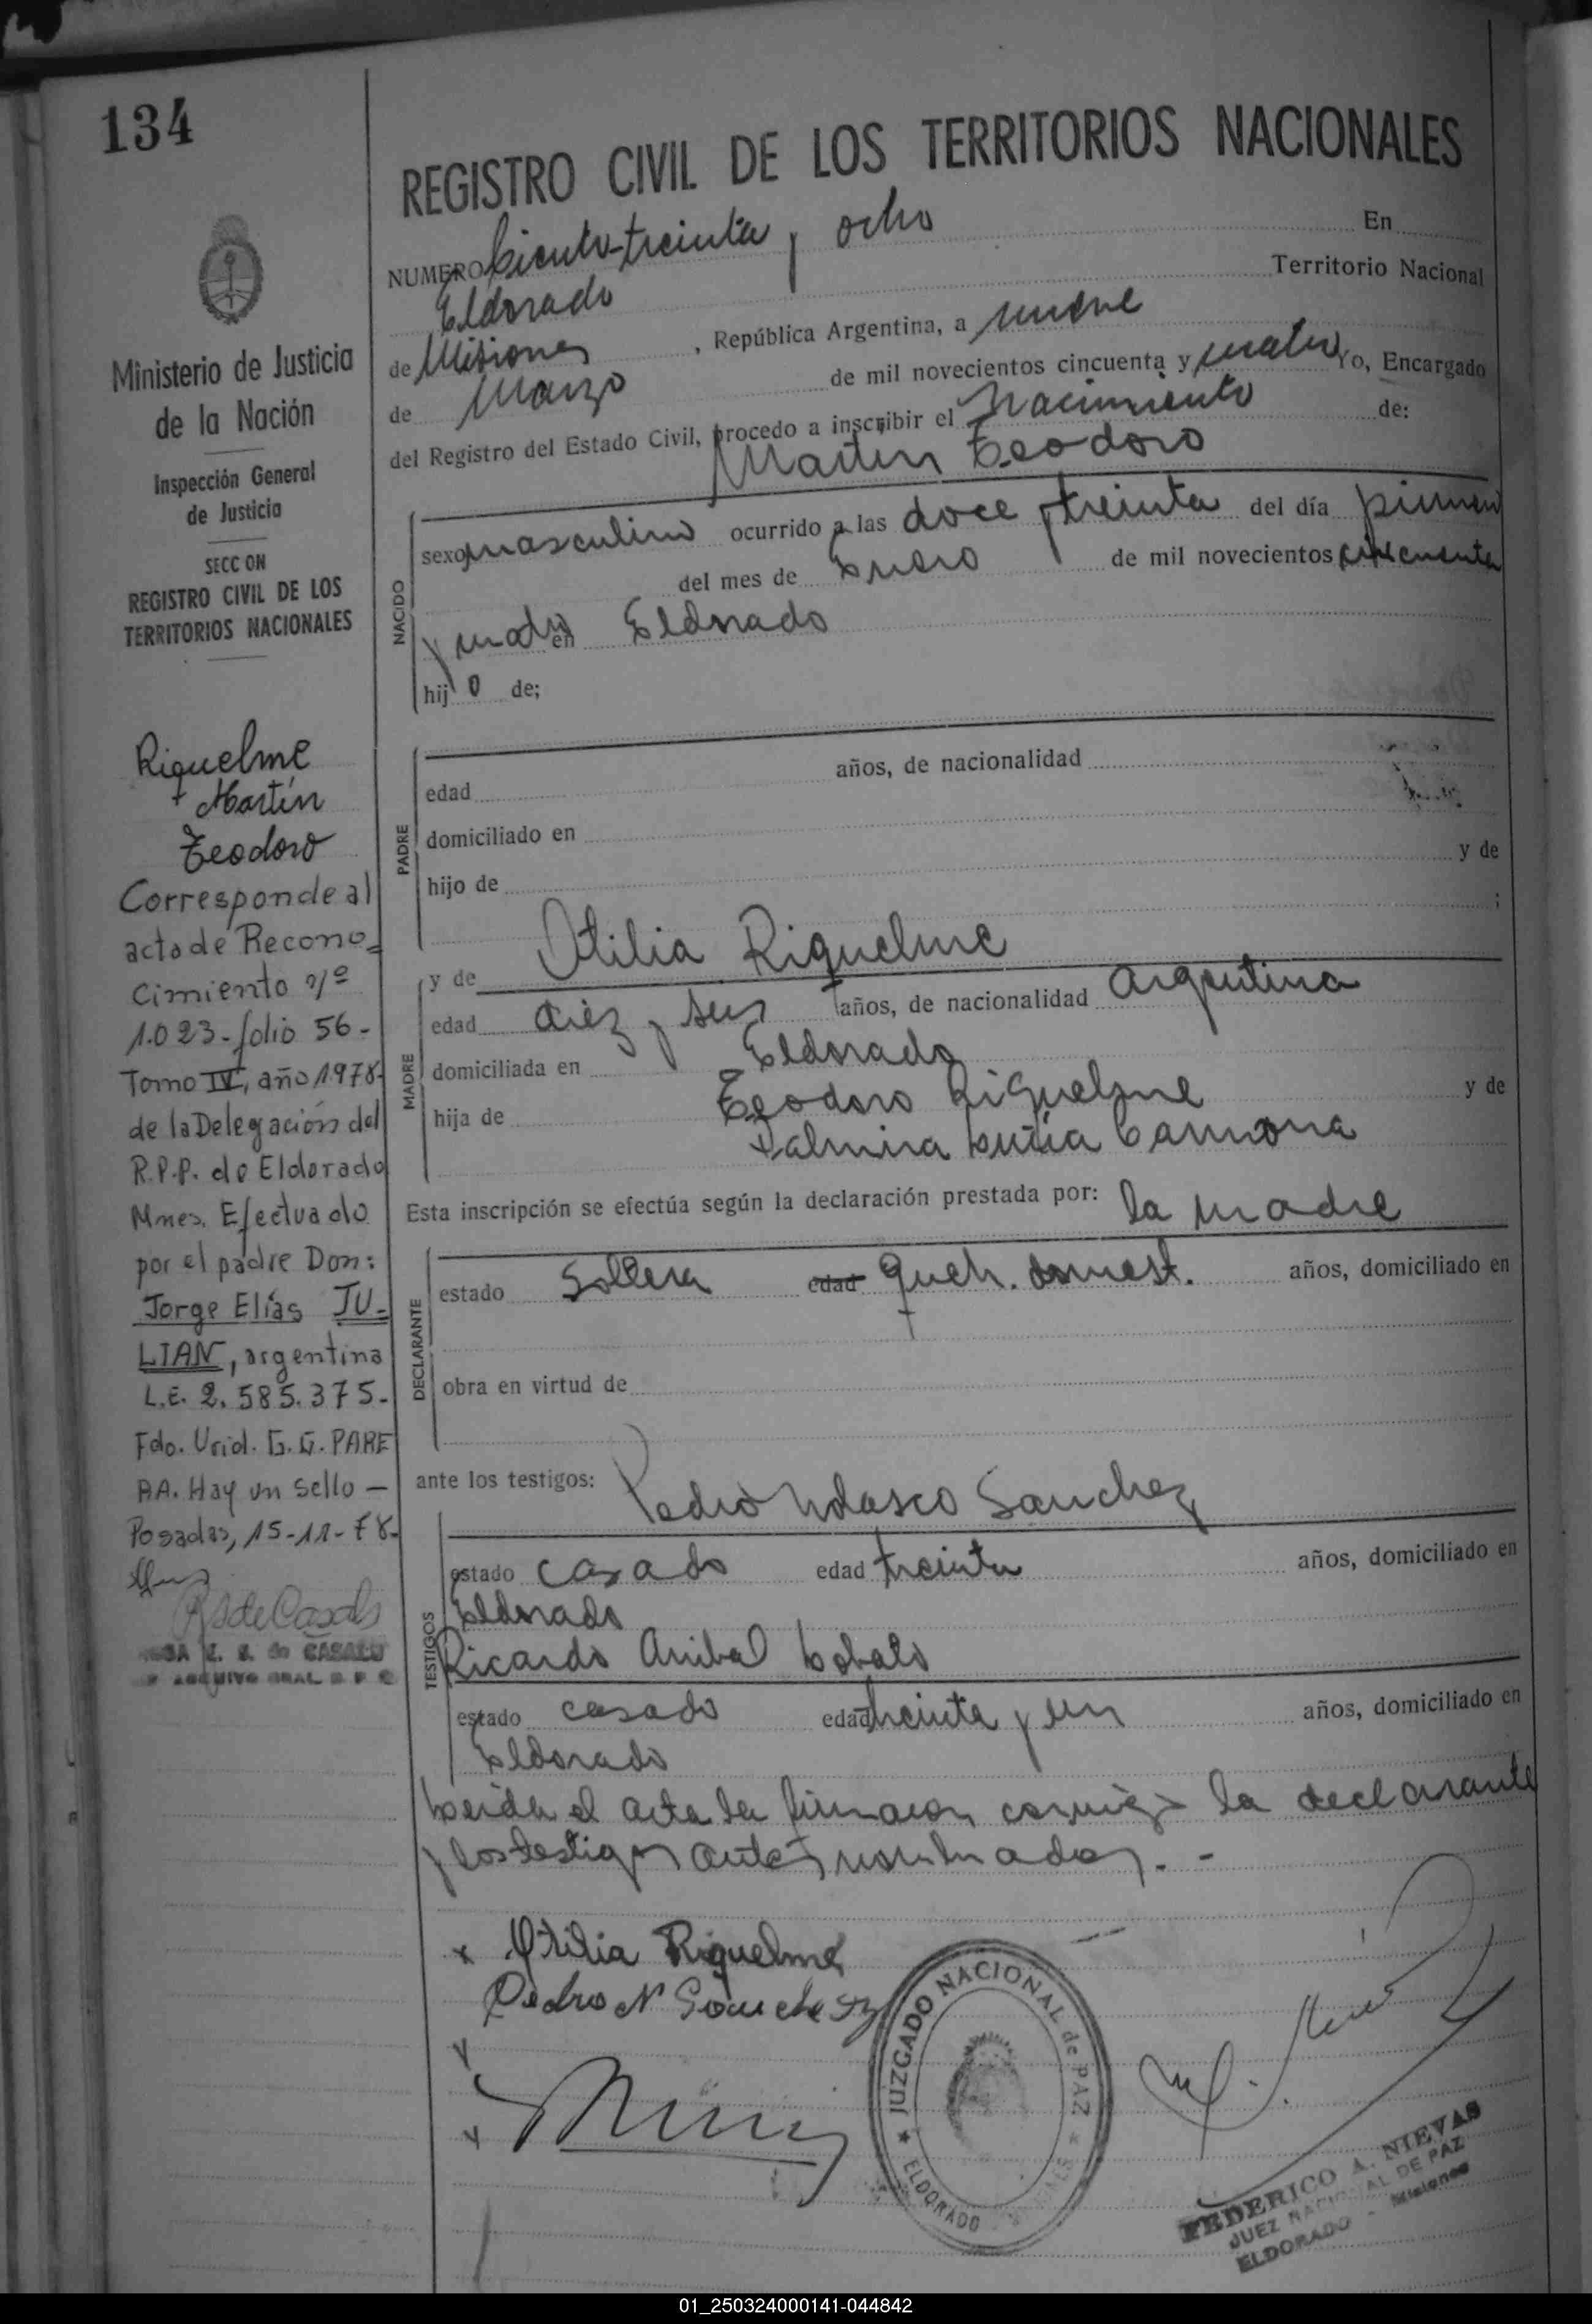 134
Ministerio de Justicia
de la Nación
Inspección General
de Justicia
SECC ON
REGISTRO CIVIL DE LOS
TERRITORIOS NACIONALES
Riquelme
Martín
Teodoro
Corresponde al
acta de Recono=
cimiento nº
1.023- folio 56-
Tomo IV, año 1978-
de la Delegación del
R.P.P. de Eldorado
Mnes. Efectuado
por el padre Don:
Jorge Elías JU-
LIAN, argentino
L.E. 2.585.375-
Fdo. Urid. G. G. PARE
AA. Hay un sello —
Posadas, 15-11-78-
RS de Casals
REGISTRO CIVIL DE LOS TERRITORIOS NACIONALES
NUMERO Ciento treinta y ocho En
Eldorado Territorio Nacional
de Misiones, República Argentina, a nueve
de Marzo de mil novecientos cincuenta y cuatro Yo, Encargado
del Registro del Estado Civil, procedo a inscribir el Nacimiento de:
Martin Teodoro
NACIDO
sexo masculino ocurrido a las doce y treinta del día primero
del mes de Enero de mil novecientos cincuenta
y cuatro en Eldorado
hijo de;
PADRE
edad años, de nacionalidad
domiciliado en
hijo de y de
;
MADRE
y de Otilia Riquelme
edad diez y seis años, de nacionalidad Argentina
domiciliada en Eldorado
hija de Teodoro Riquelme y de
Palmira Carmona
Esta inscripción se efectúa según la declaración prestada por: la madre
DECLARANTE
estado Soltera edad queh. domest. años, domiciliado en
obra en virtud de
ante los testigos: Pedro Nolasco Sanchez
TESTIGOS
estado casado edad treinta años, domiciliado en
Eldorado
Ricardo Anibal
estado casado edad treinta y un años, domiciliado en
Eldorado
Leida el acta la firmaron conmigo la declarante
y los testigos antes nombrados. -
x Otilia Riquelme
Pedro N Sanchez
JUZGADO NACIONAL de PAZ
ELDORADO
FEDERICO A. NIEVAS
JUEZ NACIONAL DE PAZ
ELDORADO - Misiones
01_250324000141-044842